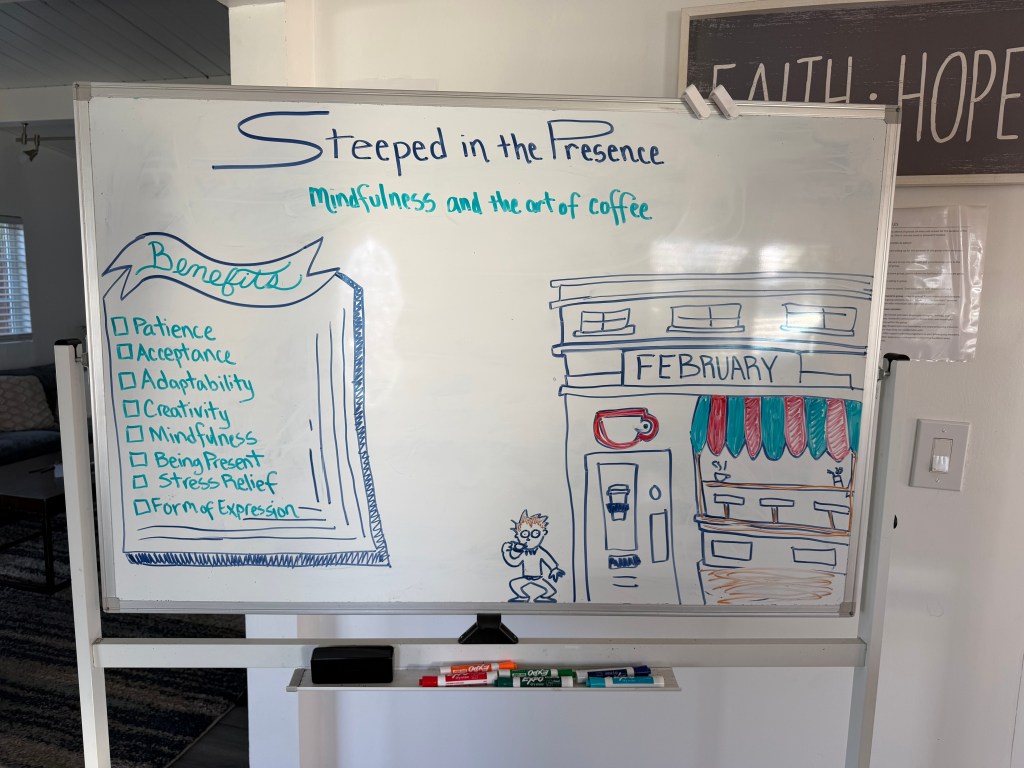 FAITH · HOPE
Steeped in the Presence
Mindfulness and the art of coffee
Benefits
Patience
Acceptance
Adaptability
Creativity
Mindfulness
Being Present
Stress Relief
Form of Expression
FEBRUARY
EXPO
EXPO